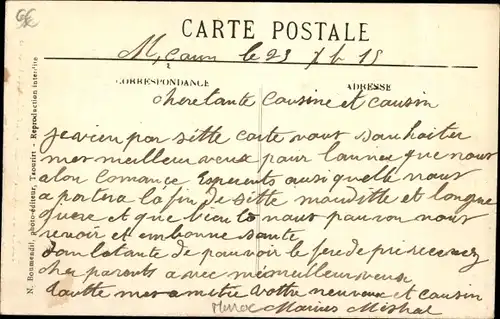 CARTE POSTALE
M,Çaun le 23 Xb 15
CORRESPONDANCE
ADRESSE
chere tante Cousine et Cousin
je vien par sette carte vous souhaiter
mes meilleur veux pour lannee que nous
alon comance Esperents ausi quelle nous
a portera la fin de sette mauditte et longue
guere et que biento nous pouron nous
revoir et en bonne sante
dan latante de pouvoir le fere
cher parents avec mes meilleur veux
votre neuveux et cousin
Maroc Marius Mistral
N. Boumendil, photo-éditeur, Taourirt - Reproduction interdite